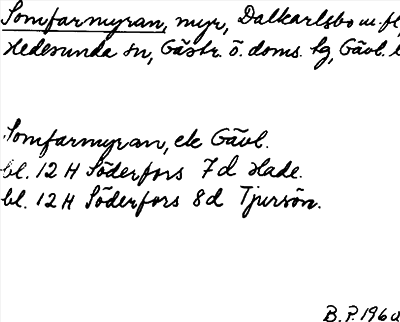 Somfarmyran, myr, Dalkarlsbo m. fl,
Hedesunda sn, Gästr. ö. doms. hg, Gävl. l
Somfarmyran, ek Gävl.
bl. 12 H Söderfors 7 d Hade.
bl. 12 H Söderfors 8 d Tjursön.
B. P. 1960